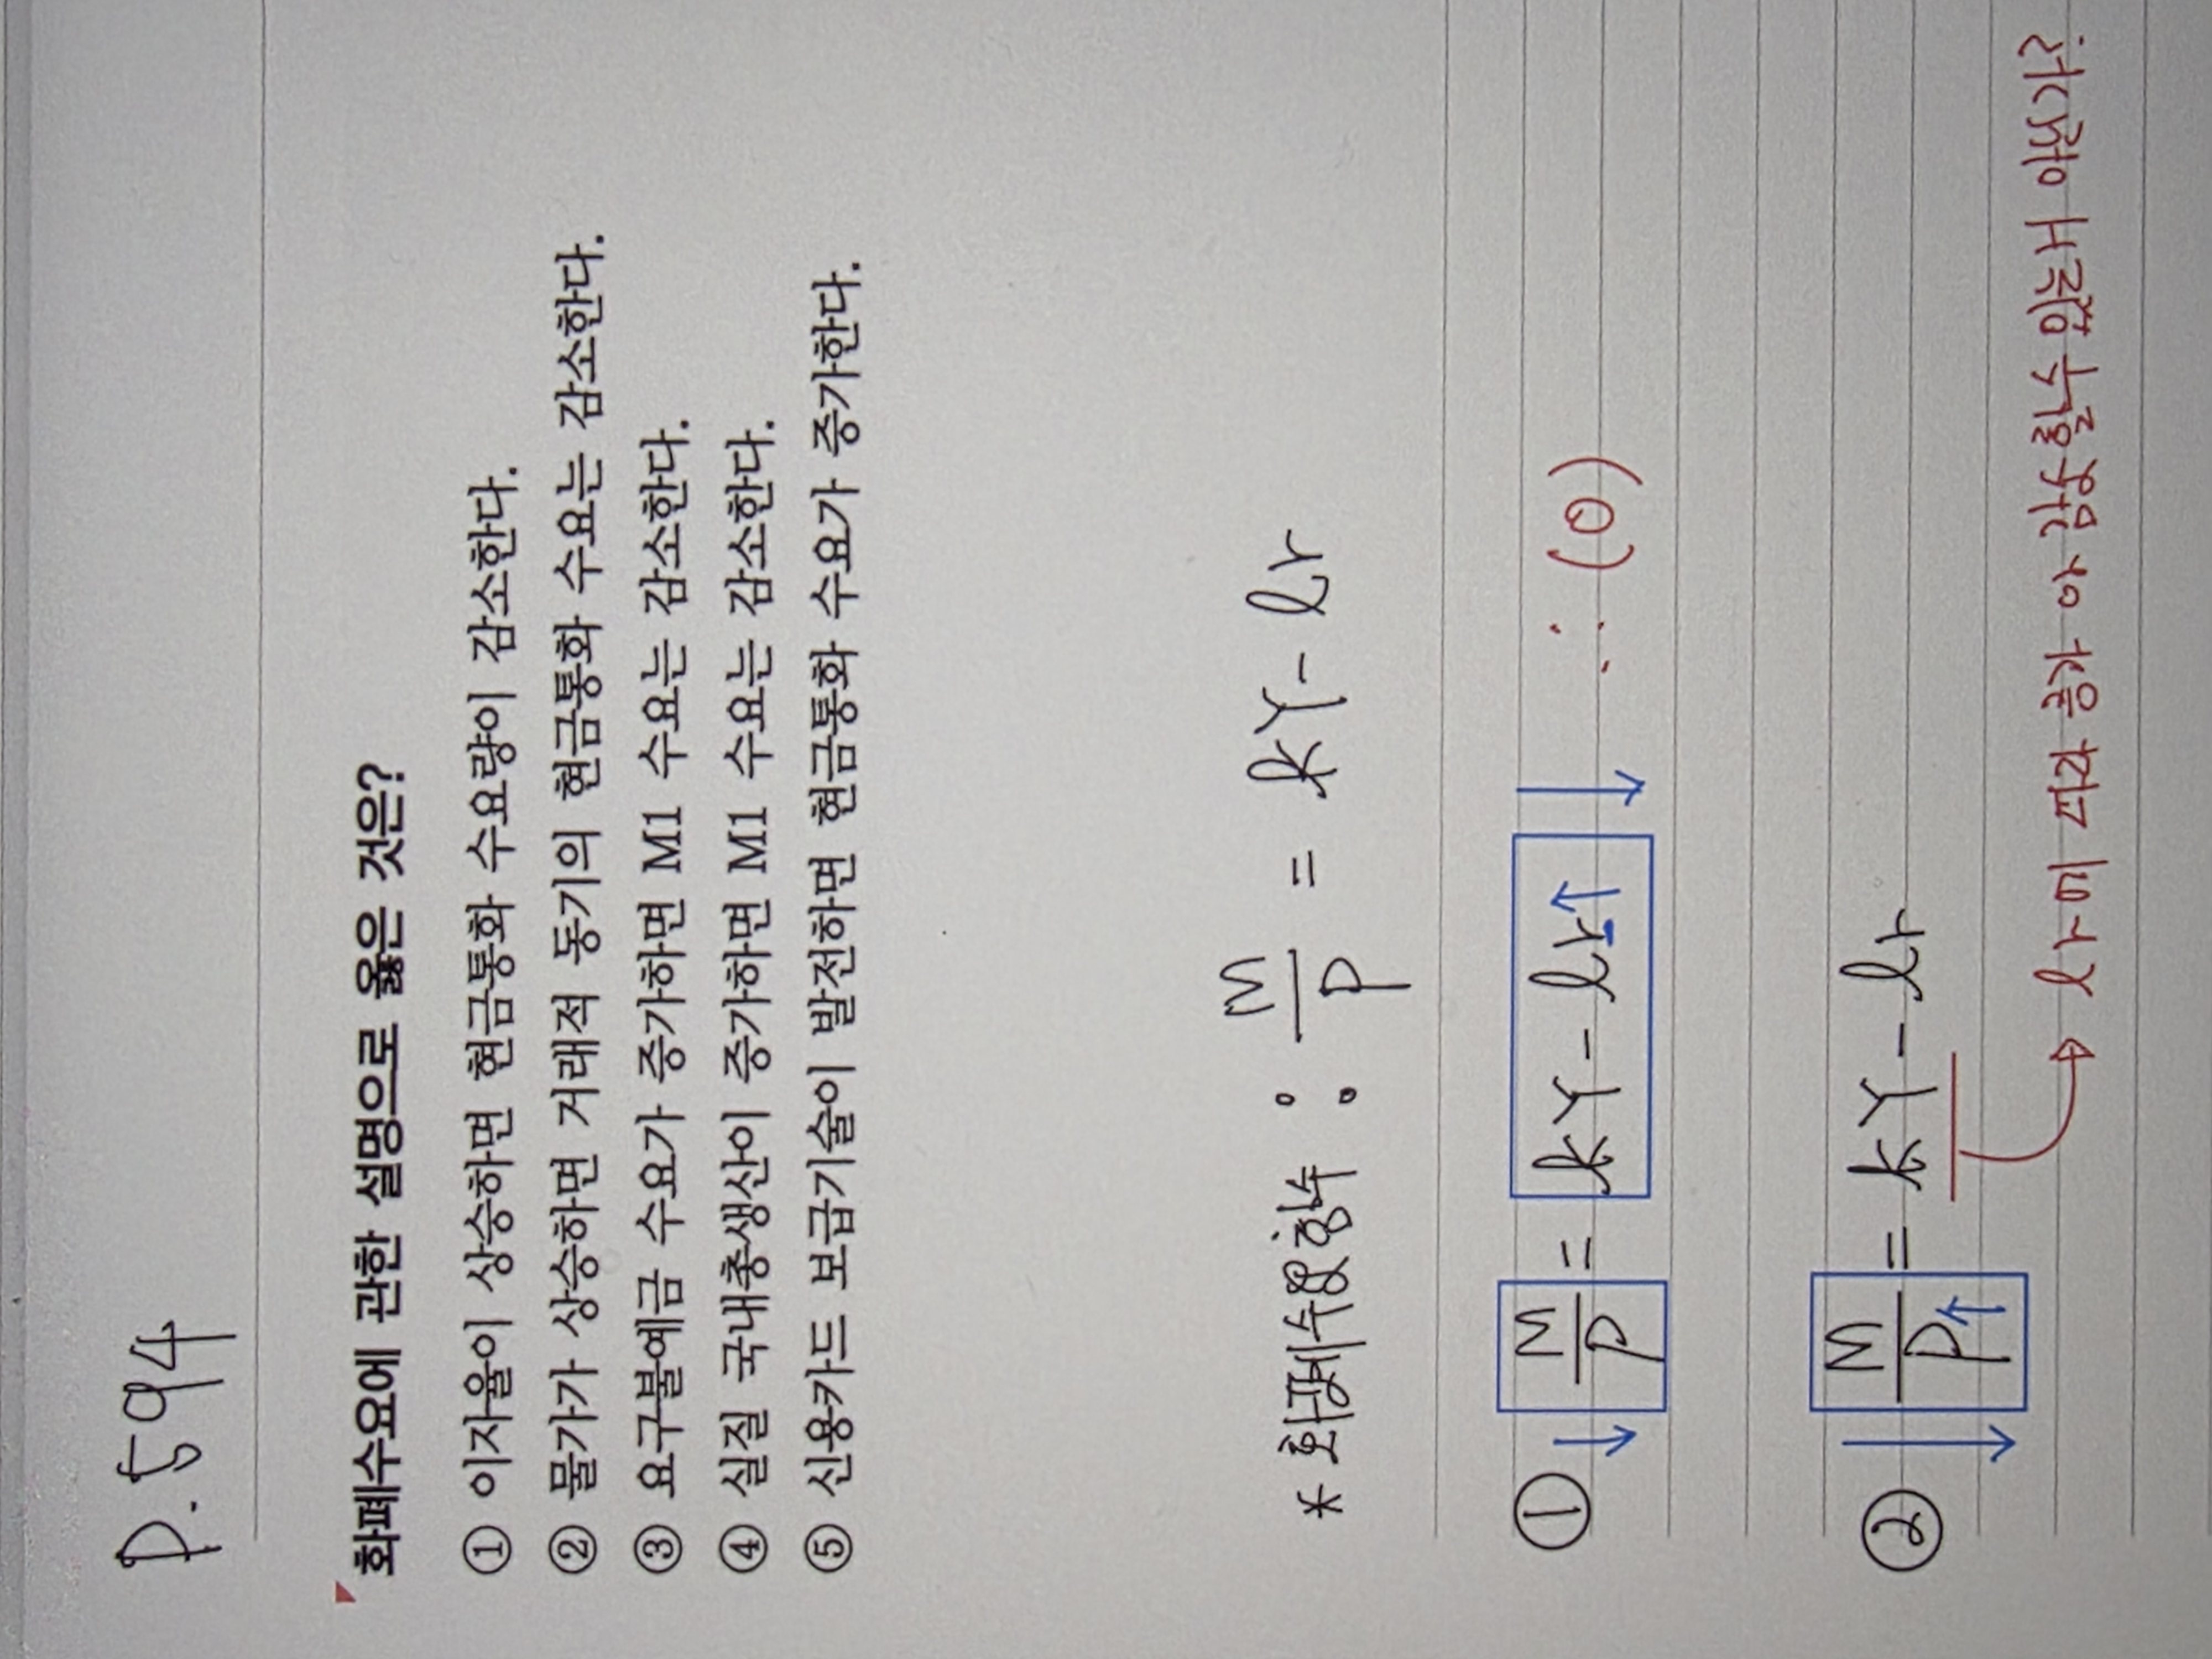 P.594
화폐수요에 관한 설명으로 옳은 것은?
① 이자율이 상승하면 현금통화 수요량이 감소한다.
② 물가가 상승하면 거래적 동기의 현금통화 수요는 감소한다.
③ 요구불예금 수요가 증가하면 M1 수요는 감소한다.
④ 실질 국내총생산이 증가하면 M1 수요는 감소한다.
⑤ 신용카드 보급기술이 발전하면 현금통화 수요가 증가한다.
* 화폐수요함수 : M/P = kY - lr
① ↓ M/P = kY - lr↑ ↓ ∴ (O)
② ↓ M/P↑ = kY - lr